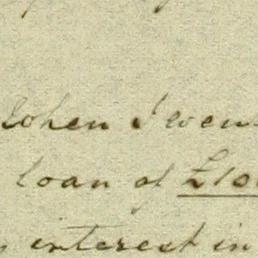 when I wen
loan of £10
interest in